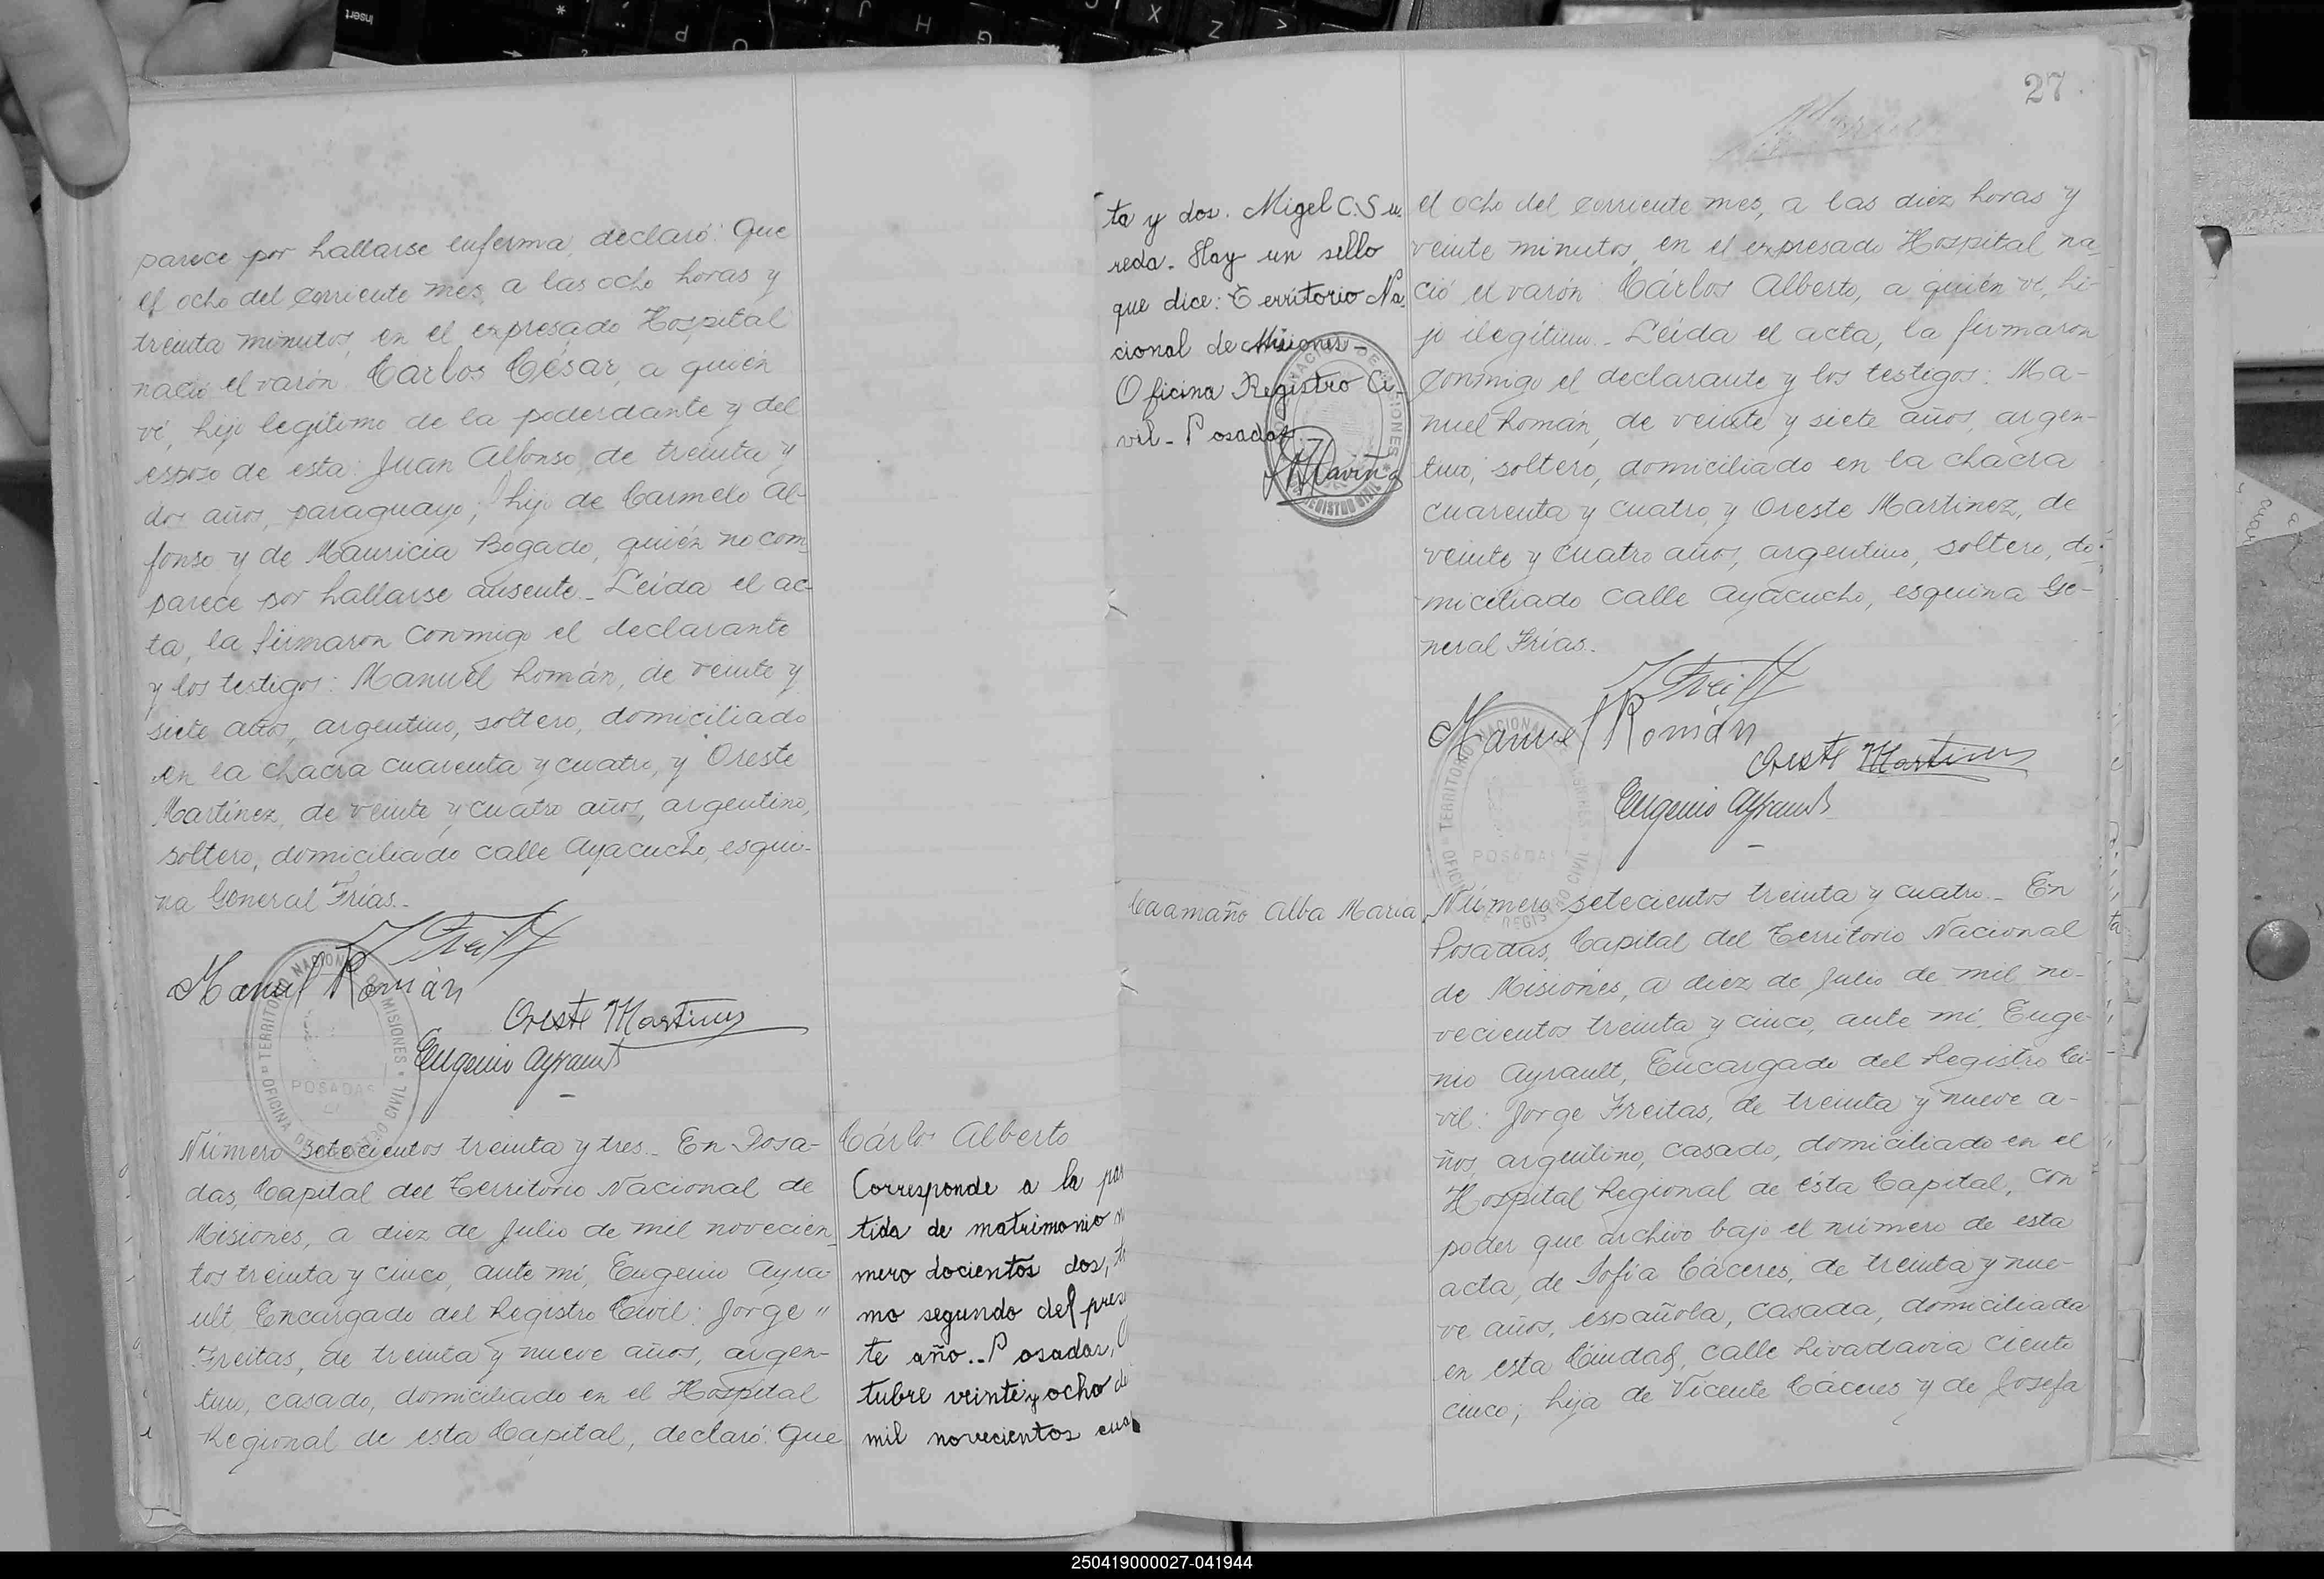 parece por hallarse enferma, declaró: Que
el ocho del corriente mes, a las ocho horas y
treinta minutos, en el expresado Hospital
nació el varón Carlos César, a quién
ví, hijo legítimo de la poderdante y del
esposo de esta: Juan Alfonso, de treinta y
dos años, paraguayo; hijo de Carmelo Al-
fonso y de Mauricia Bogado, quién no com-
parece por hallarse ausente.- Leída el ac-
ta, la firmaron conmigo el declarante
y los testigos: Manuel Román, de veinte y
siete años, argentino, soltero, domiciliado
en la chacra cuarenta y cuatro, y Oreste
Martínez, de veinte y cuatro años, argentino,
soltero, domiciliado calle Ayacucho, esqui-
na General Frías.-
Manuel Román
Oreste Martinez
Eugenio Ayrault
TERRITORIO NACIONAL DE MISIONES
POSADAS
OFICINA DE REGISTRO CIVIL
Número setecientos treinta y tres.- En Posa-
das, Capital del Territorio Nacional de
Misiones, a diez de Julio de mil novecien-
tos treinta y cinco, ante mí, Eugenio Ayra-
ult, Encargado del Registro Civil: Jorge "
Freitas, de treinta y nueve años, argen-
tino, casado, domiciliado en el Hospital
Regional de esta Capital, declaró: Que
Cárlos Alberto
Corresponde a la par
tida de matrimonio n
mero docientos dos, to
mo segundo del prese
te año.- Posadas, O
tubre veinte y ocho de
mil novecientos cua
27
ta y dos. Migel C. Su
reda.- Hay un sello
que dice: Territorio Na-
cional de Misiones-
Oficina Registro Ci-
vil- Posadas
REGISTRO CIVIL
el ocho del corriente mes, a las diez horas y
veinte minutos, en el expresado Hospital na-
ció el varón Cárlos Alberto, a quién ví, hi-
jo ilegítimo.- Leída el acta, la firmaron
conmigo el declarante y los testigos: Ma-
nuel Román, de veinte y siete años, argen-
tino, soltero, domiciliado en la chacra
cuarenta y cuatro, y Oreste Martínez, de
veinte y cuatro años, argentino, soltero, do-
miciliado calle Ayacucho, esquina Ge-
neral Frías.-
Manuel Román
Oreste Martinez
Eugenio Ayrault
TERRITORIO NACIONAL DE MISIONES
POSADAS
OFICINA DE REGISTRO CIVIL
Caamaño Alba María
Número setecientos treinta y cuatro.- En
Posadas, Capital del Territorio Nacional
de Misiones, a diez de Julio de mil no-
vecientos treinta y cinco, ante mí, Euge-
nio Ayrault, Encargado del Registro Ci-
vil: Jorge Freitas, de treinta y nueve a-
ños, argentino, casado, domiciliado en el
Hospital Regional de ésta Capital, con
poder que archivo bajo el número de esta
acta, de Sofía Cáceres, de treinta y nue-
ve años, española, casada, domiciliada
en esta Ciudad, calle Rivadavia ciento
cinco; hija de Vicente Cáceres y de Josefa
250419000027-041944